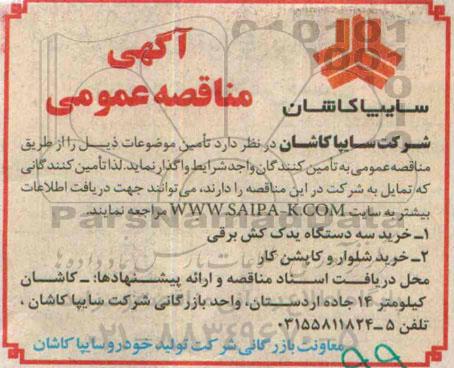 آگهی
مناقصه عمومی
سایپا کاشان
شرکت سایپا کاشان در نظر دارد تأمین موضوعات ذیـل را از طریق
مناقصه عمومی به تأمین کنندگان واجد شرایط واگذار نماید. لذا تأمین کنندگانی
که تمایل به شرکت در این مناقصه را دارند، می توانند جهت دریافت اطلاعات
بیشتر به سایت WWW.SAIPA-K.COM مراجعه نمایند.
۱ـ خرید سه دستگاه یدک کش برقی
۲ـ خرید شلوار و کاپشن کار
محل دریافت اسناد مناقصه و ارائه پیشنهادها: ـ کاشان
کیلومتر ۱۴ جاده اردستان، واحد بازرگانی شرکت سایپا کاشان ،
تلفن ۵ ـ ۰۳۱۵۵۸۱۱۸۲۴
معاونت بازرگانی شرکت تولید خودرو سایپا کاشان
۹۹